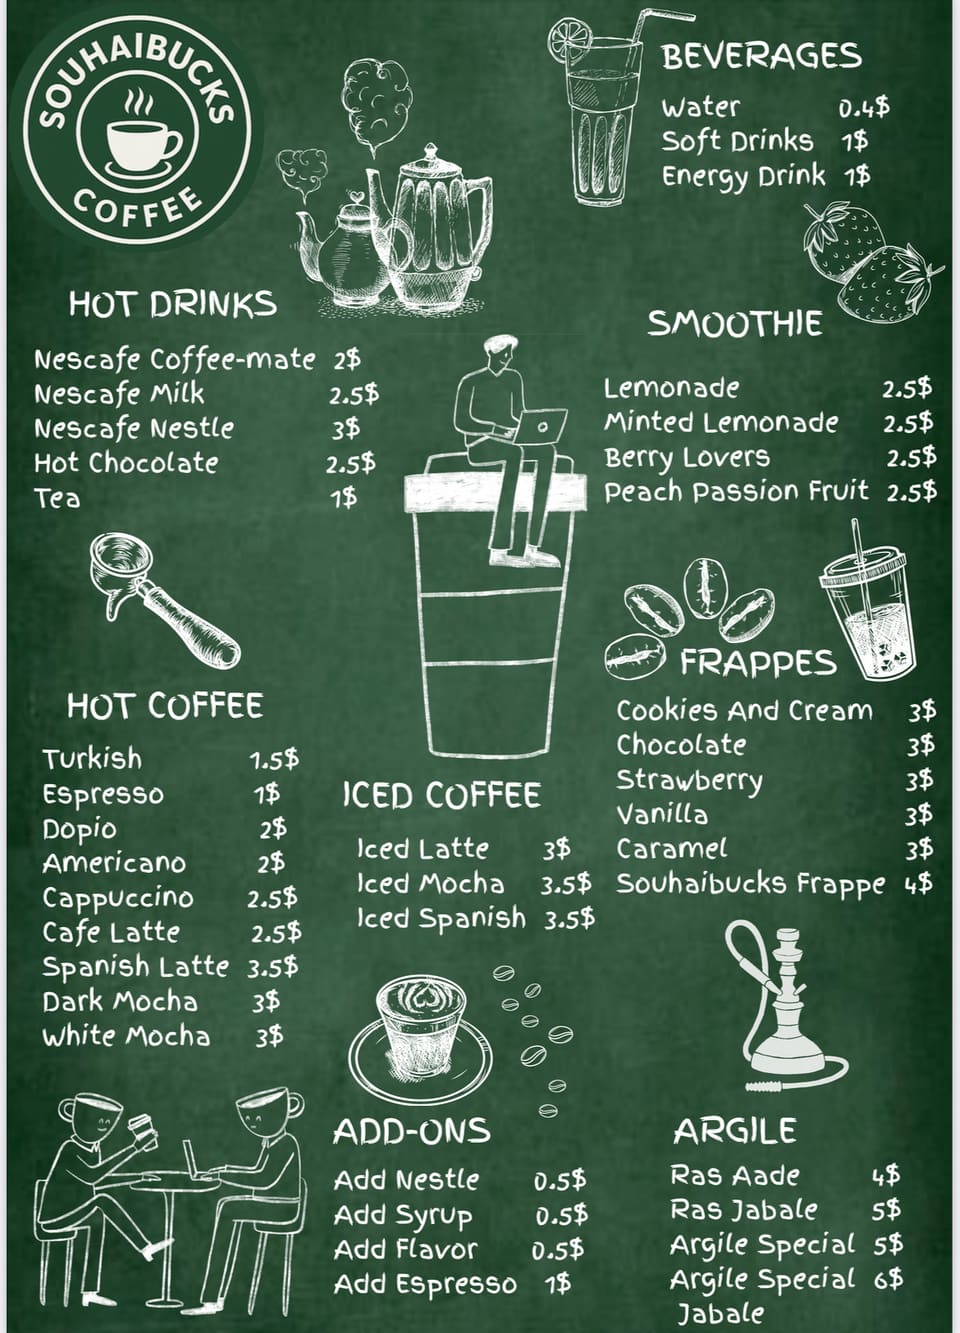 SOUHAIBUCKS
COFFEE
BEVERAGES
Water 0.4$
Soft Drinks 1$
Energy Drink 1$
HOT DRINKS
Nescafe Coffee-mate 2$
Nescafe Milk 2.5$
Nescafe Nestle 3$
Hot Chocolate 2.5$
Tea 1$
SMOOTHIE
Lemonade 2.5$
Minted Lemonade 2.5$
Berry Lovers 2.5$
Peach Passion Fruit 2.5$
HOT COFFEE
Turkish 1.5$
Espresso 1$
Dopio 2$
Americano 2$
Cappuccino 2.5$
Cafe Latte 2.5$
Spanish Latte 3.5$
Dark Mocha 3$
White Mocha 3$
ICED COFFEE
Iced Latte 3$
Iced Mocha 3.5$
Iced Spanish 3.5$
FRAPPES
Cookies And Cream 3$
Chocolate 3$
Strawberry 3$
Vanilla 3$
Caramel 3$
Souhaibucks Frappe 4$
ADD-ONS
Add Nestle 0.5$
Add Syrup 0.5$
Add Flavor 0.5$
Add Espresso 1$
ARGILE
Ras Aade 4$
Ras Jabale 5$
Argile Special 5$
Argile Special 6$
Jabale